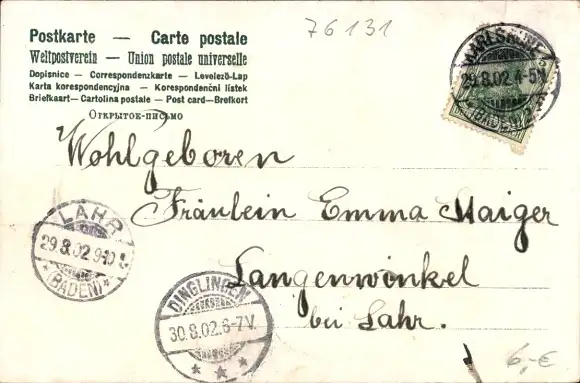 76131
Postkarte — Carte postale
Weltpostverein — Union postale universelle
Dopisnice — Correspondenzkarte — Levelező-Lap
Karta korespondencyjna — Korespondenční lístek
Briefkaart — Cartolina postale — Post card — Brefkort
Открытое-письмо
KARLSRUHE
29.8.02.4-5N.
(BADEN)
Wohlgeboren
Fräulein Emma Maiger
Langenwinkel
bei Lahr.
LAHR
29.8.02.9-10
*(BADEN)*
DINGLINGEN
30.8.02.6-7V.
6,-€